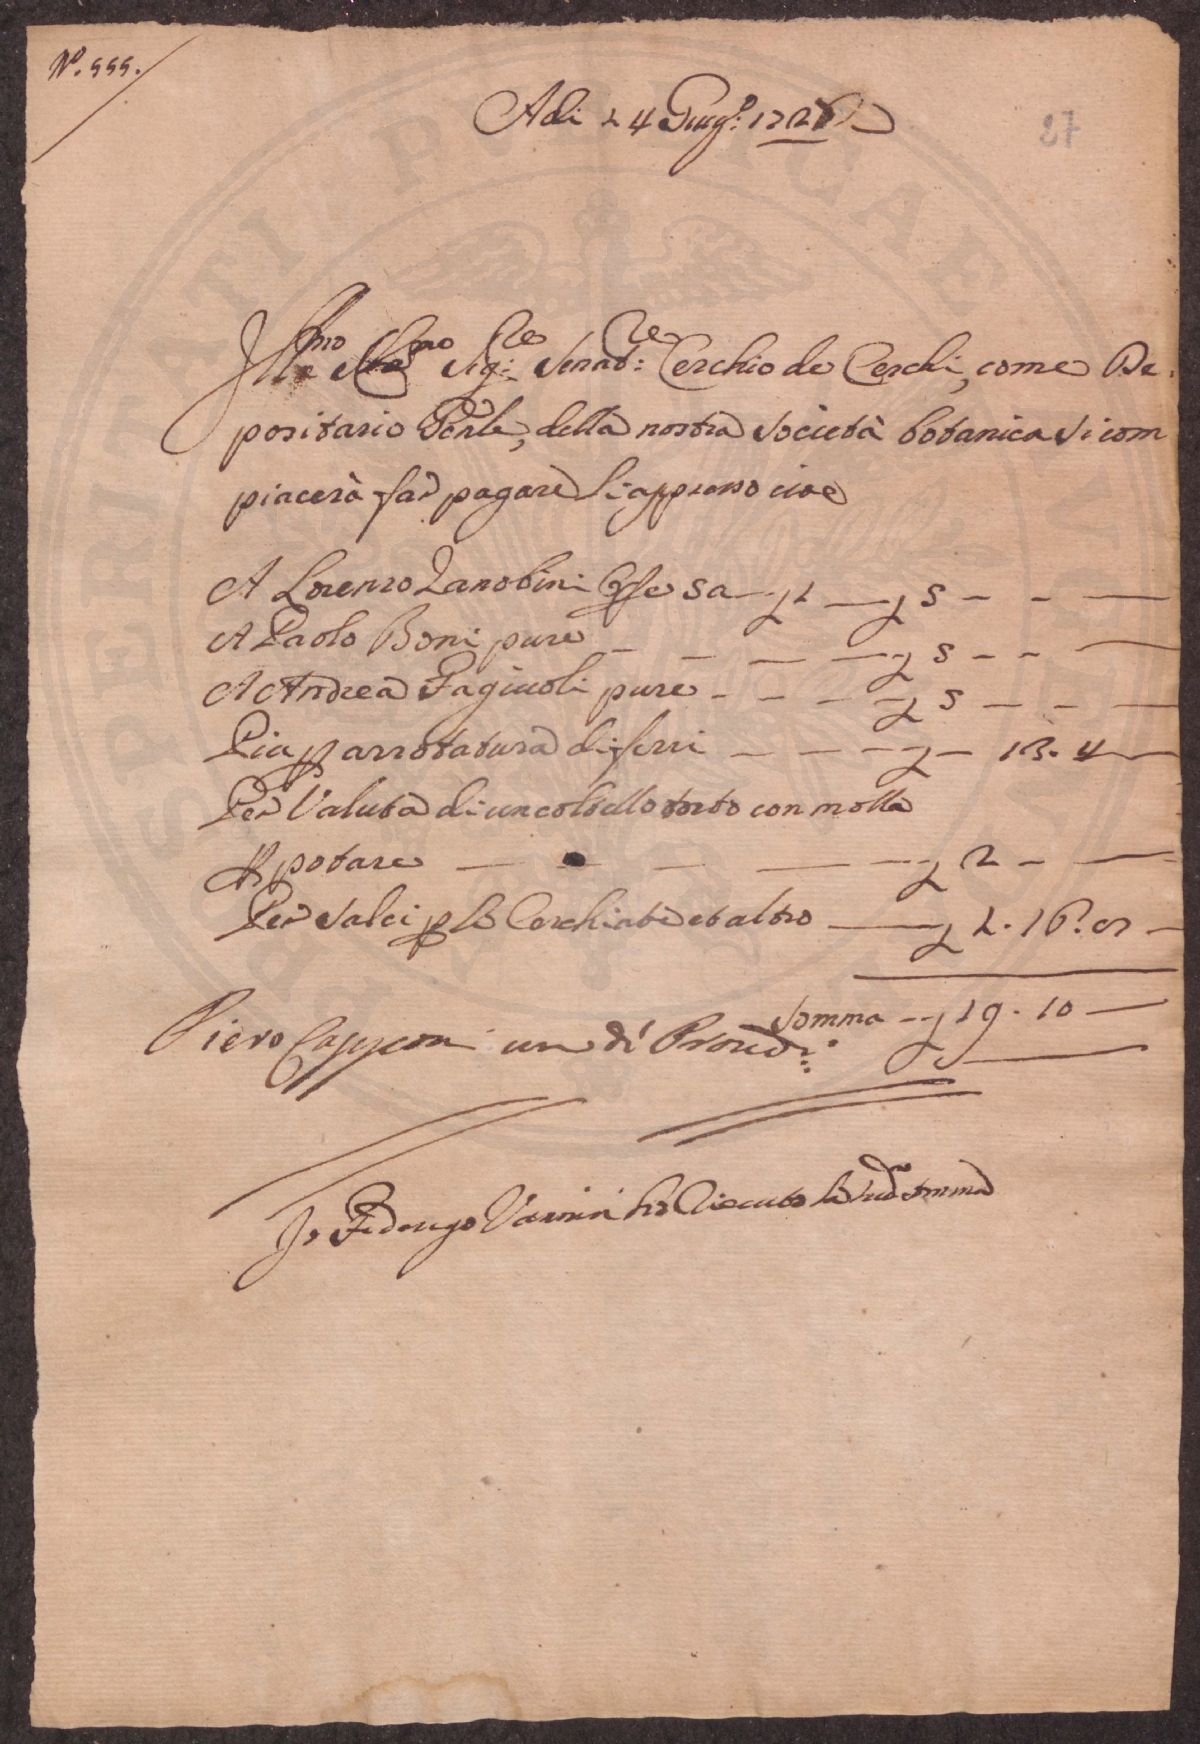 N.º 555.
Adi 24 Giug.º 1726
87
Ill.mo Sig.re Senat.re Cerchio de Cerchi, come De-
positario Gen.le, della nostra Società botanica si com
piacerà far pagare l'appresso cioe
A Lorenzo Zanobini sa £ 1 £ 5 - -
A Paolo Boni pure £ 5 - -
A Andrea Fagiuoli pure £ 5 - -
Piu p arrotatura di ferri £ - 13. 4
Per Valuta di un coltello torto con molla
p potare £ 2 -
Per Salci p le Cerchiate et altro £ 1. 16. 8
Somma £ 19. 10
Piero Capponi uno de' Proved.ri
Io Vannini ho riceuto la sud.a somma